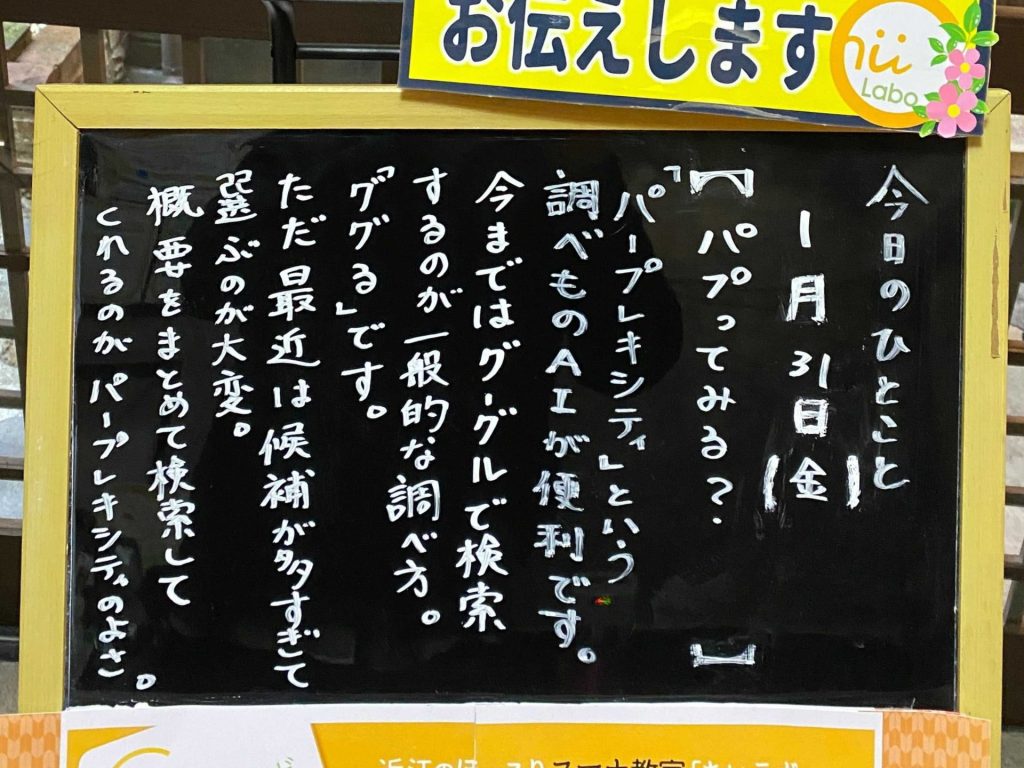 お伝えします
nii
Labo
今日のひとこと
1月31日(金)
【パプってみる?】
「パープレキシティ」という
調べものAIが便利です。
今まではグーグルで検索
するのが一般的な調べ方。
「ググる」です。
ただ最近は候補が多すぎて
選ぶのが大変。
概要をまとめて検索して
くれるのがパープレキシティのよさ。